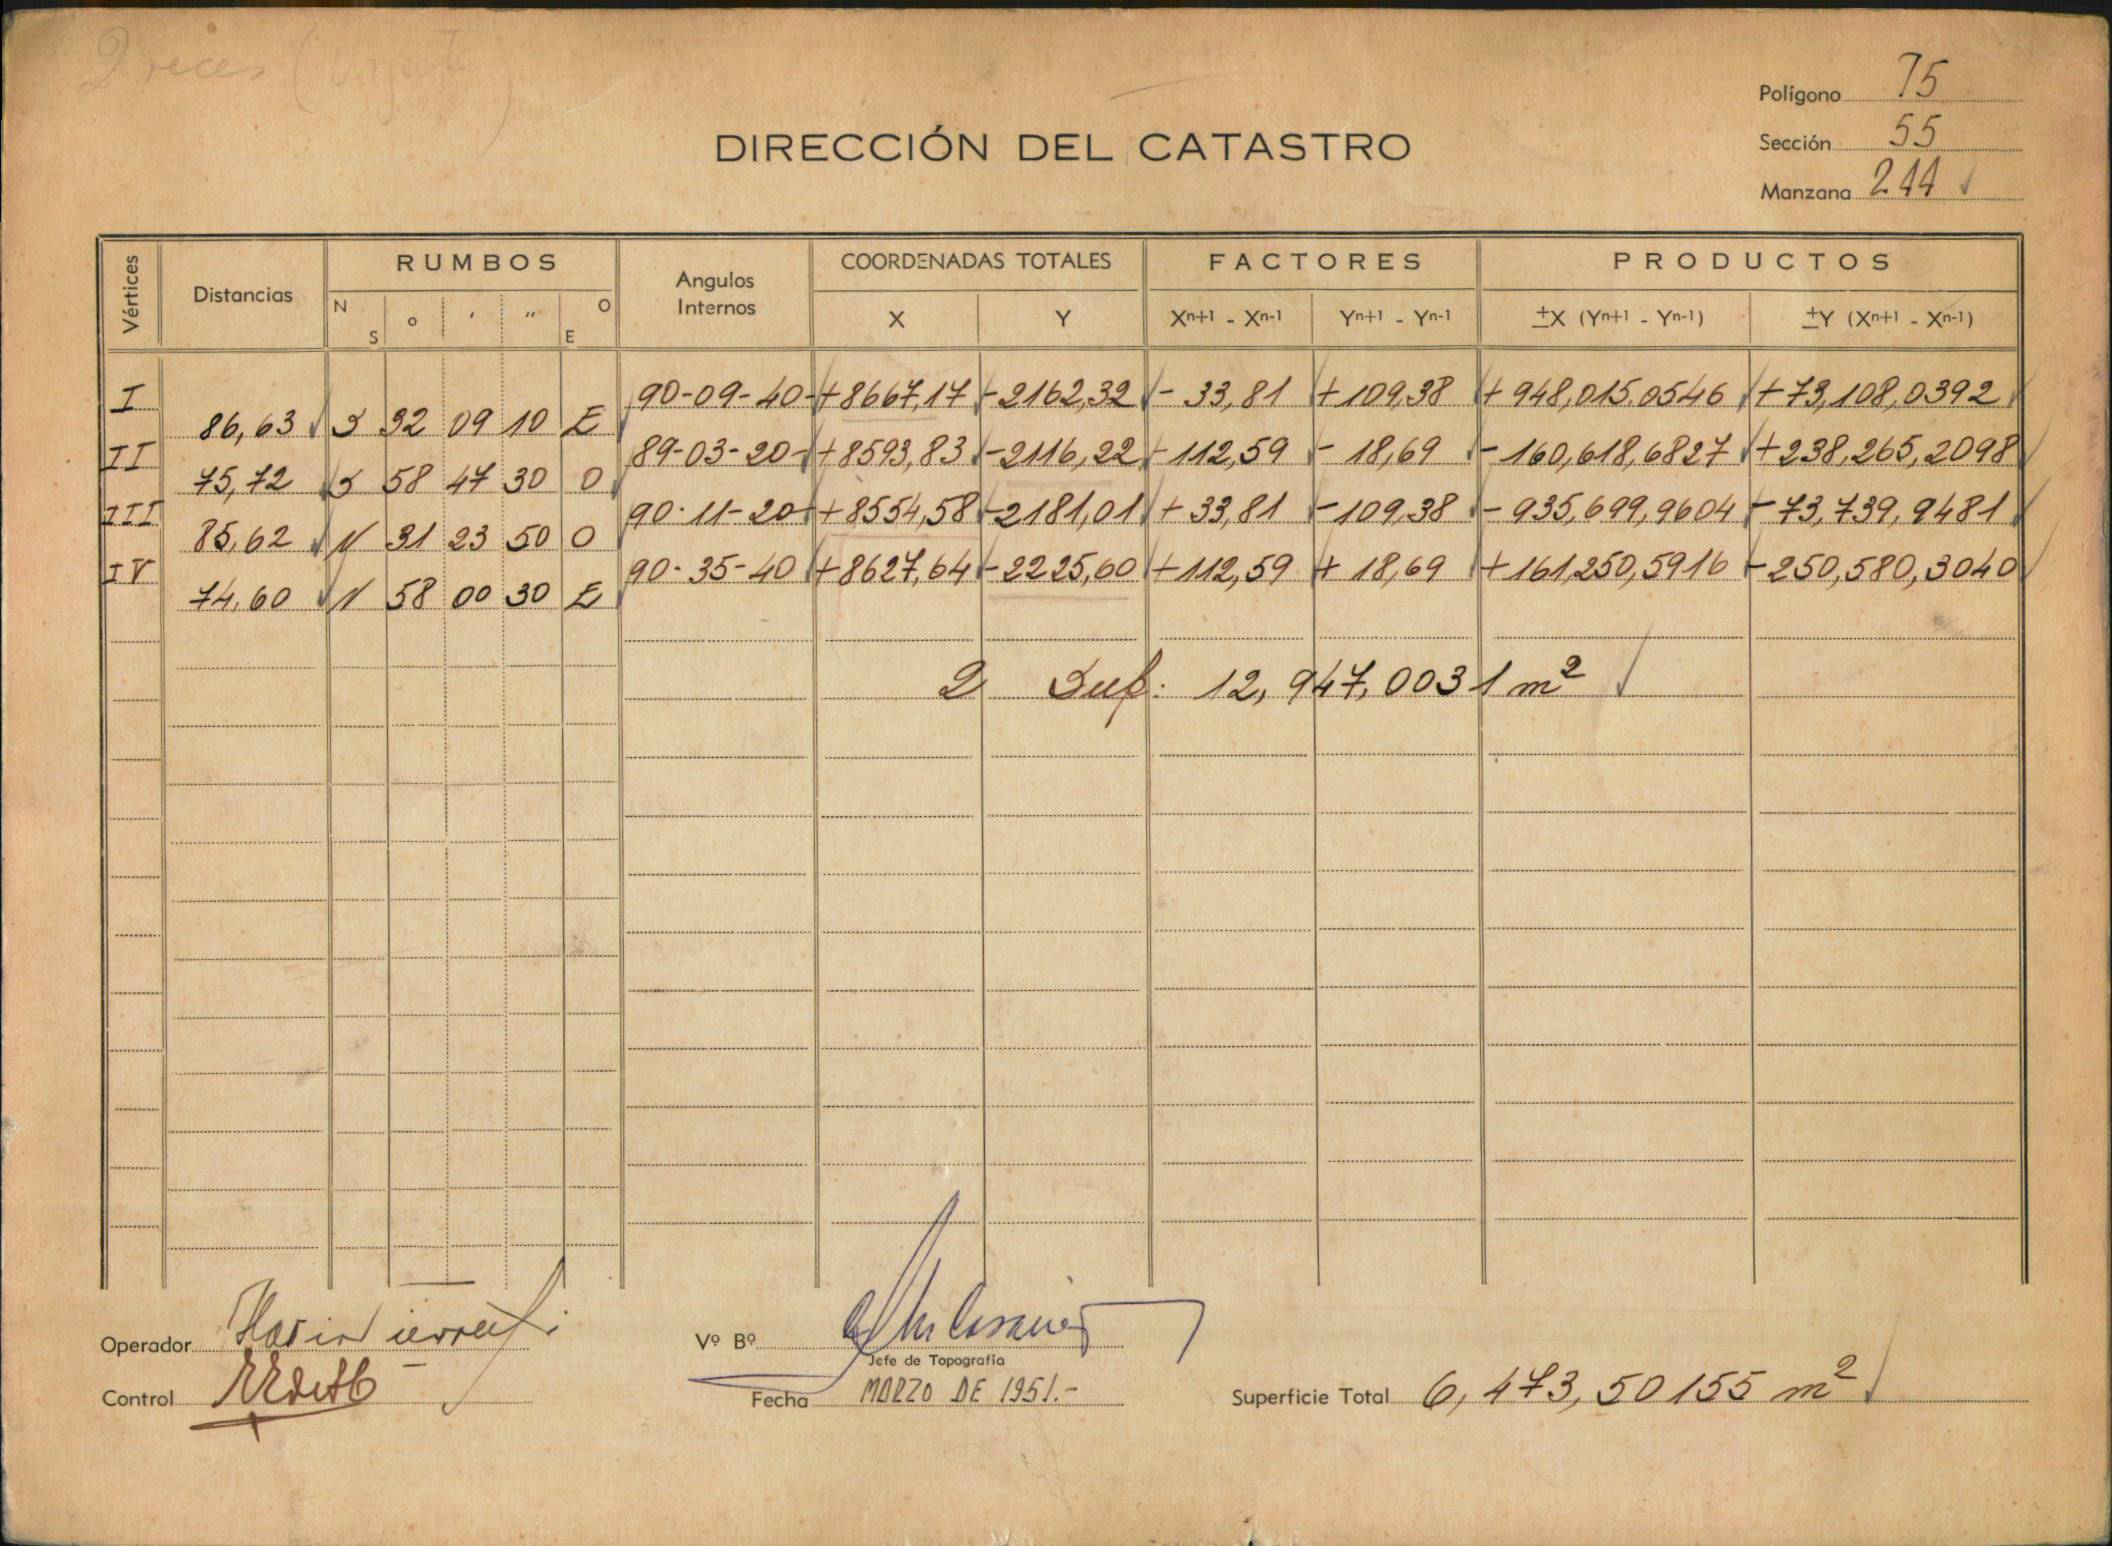 2 veces (Urgente)
Polígono 75
DIRECCIÓN DEL CATASTRO
Sección 55
Manzana 244 ✓
Vértices Distancias RUMBOS Angulos Internos COORDENADAS TOTALES FACTORES PRODUCTOS
N S o ' " O E X Y Xn+1 - Xn-1 Yn+1 - Yn-1 ±X (Yn+1 - Yn-1) ±Y (Xn+1 - Xn-1)
I 90-09-40 +8667,17 -2162,32 - 33,81 +109,38 +948,015,0546 +73,108,0392
86,63 S 32 09 10 E
II 89-03-20 +8593,83 -2116,22 -112,59 - 18,69 -160,618,6827 +238,265,2098
75,72 S 58 47 30 O
III 90-11-20 +8554,58 -2181,01 + 33,81 -109,38 -935,699,9604 -73,739,9481
85,62 N 31 23 50 O
IV 90-35-40 +8627,64 -2225,60 +112,59 + 18,69 +161,250,5916 -250,580,3040
74,60 N 58 00 30 E
2 Sup: 12,947,0031 m² ✓
Operador
Vº Bº
Jefe de Topografía
Control
Fecha MARZO DE 1951.-
Superficie Total 6,473,50155 m² ✓